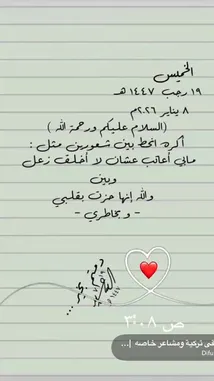 الخميس
١٩ رجب ١٤٤٧ هـ
٨ يناير ٢٠٢٦م
(السلام عليكم ورحمة الله )
أكره انحط بين شعورين مثل :
مابي أعاتب عشان لا أخلف زعل
وبين
والله إنها حزت بقلبي
- وبخاطري -
دمتم بخير ...
٣:٠٨ ص
تركية ومشاعر خاصه |...